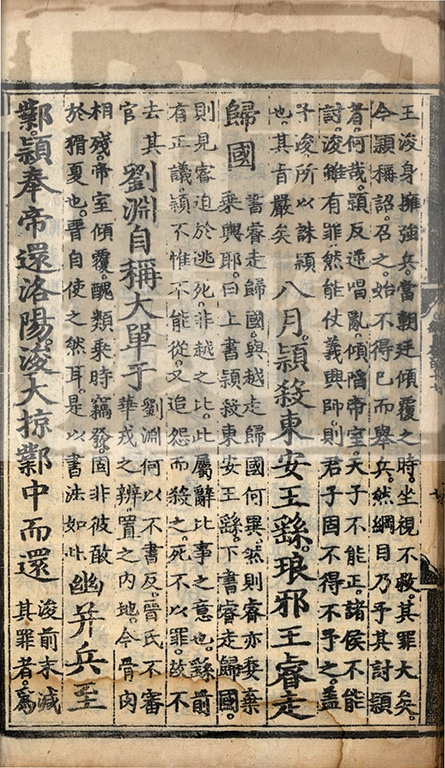 王浚身擁強兵當朝廷傾覆之時坐視不救其罪大矣
今頴稱詔召之始不得已而舉兵然綱目乃予其討頴
者何哉頴反逆唱亂傾憯帝室天子不能正諸侯不能
討浚雖有罪然能仗義興師則君子固不得不予之蓋
予浚所以誅頴
也其旨嚴矣
八月頴殺東安王繇琅邪王睿走
歸國
睿走歸國與越走歸國何異然則睿亦委棄
乗輿耶曰上書頴殺東安王繇下書睿走歸國
則見睿迫於逃死非越之比此屬辭比事之意也繇前
有正議頴不惟不能從又追怨而殺之死不以罪故不
去其
官
劉淵自稱大單于
劉淵何以不書反晉氏不審
華戎之辨置之内地今骨肉
相殘帝室傾覆醜類乗時竊發固非彼敢
於猾夏也晋自使之然耳是以書法如此
幽并兵至
鄴頴奉帝還洛陽浚大掠鄴中而還
浚前未減
其罪者爲